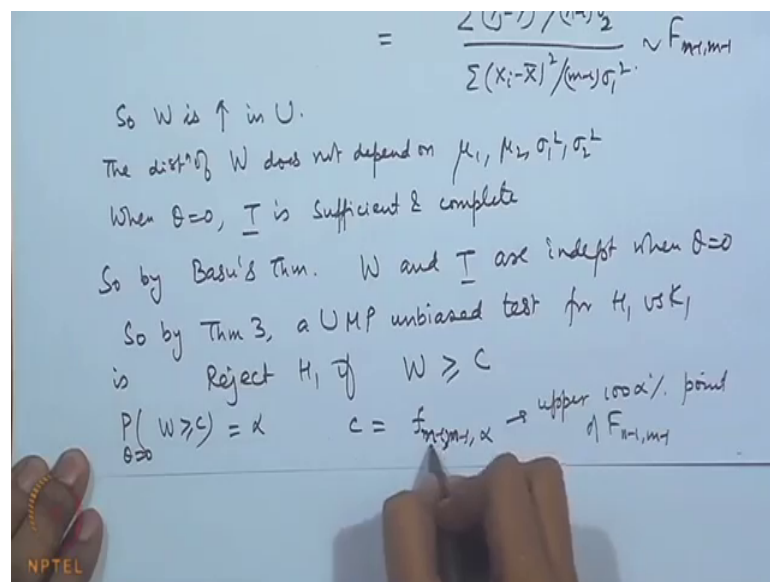 = Σ(Yj-Ȳ)²/(n-1)σ₂² / Σ(Xi-X̄)²/(m-1)σ₁² ~ Fn-1,m-1
So W is ↑ in U.
The distⁿ of W does not depend on μ₁, μ₂, σ₁², σ₂²
When θ=0, T is Sufficient & complete
So by Basu's Thm. W and T are indept when θ=0
So by Thm 3, a UMP unbiased test for H₁ vs K₁
is Reject H₁ if W ≥ C
P(W≥C) = α C = fn-1,m-1, α → upper 100α% point
θ=0 of Fn-1,m-1
NPTEL